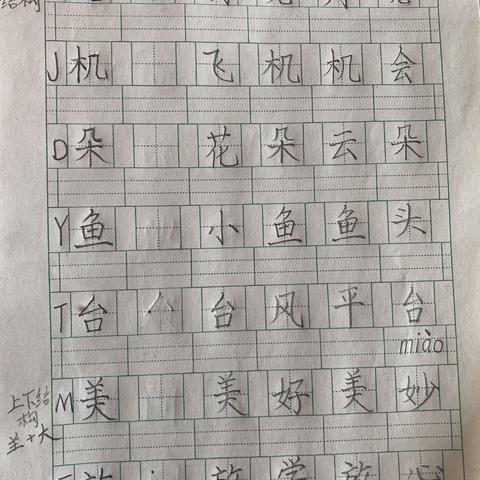 结构
J 机 飞 机 机 会
D 朵 花 朵 云 朵
Y 鱼 小 鱼 鱼 头
T 台 台 风 平 台
miào
M 美 美 好 美 妙
上下结
构
𦍌+大
放 放 学 放 心